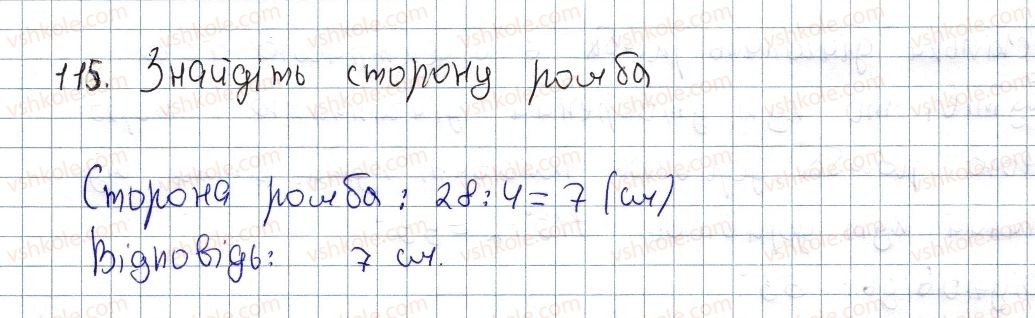 115. Знайдіть сторону ромба
Сторона ромба: 28:4=7 (см)
Відповідь: 7 см.